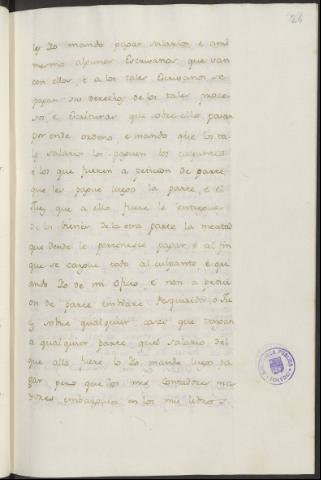 26
les Yo mando pagar salarios e ansi
mesmo algunos Escrivanos que van
con ellos e a los tales Escrivanos se
pagan sus derechos de los tales proce
sos, e Escrituras que sobre ello pasan
por onde ordeno e mando que los ta
les salarios los paguen los culpantes
e los que fueren a peticion de parte
que les pague luego la parte e el
Juez que a ello fuere le entregue
de los bienes de la otra parte la meatad
que dende le pertenesce pagar e al fin
que se cargue todo al culpante, e que
ando Yo de mi oficio e non a petici
on de parte embiare Pesquisidor o Ju
ez sobre qualquier caso que tangan
a qualquier parte quel salario del
que alla fuere lo Yo mando luego pa
gar, pero que los mis Contadores ma
yores embarguen en los mis libros